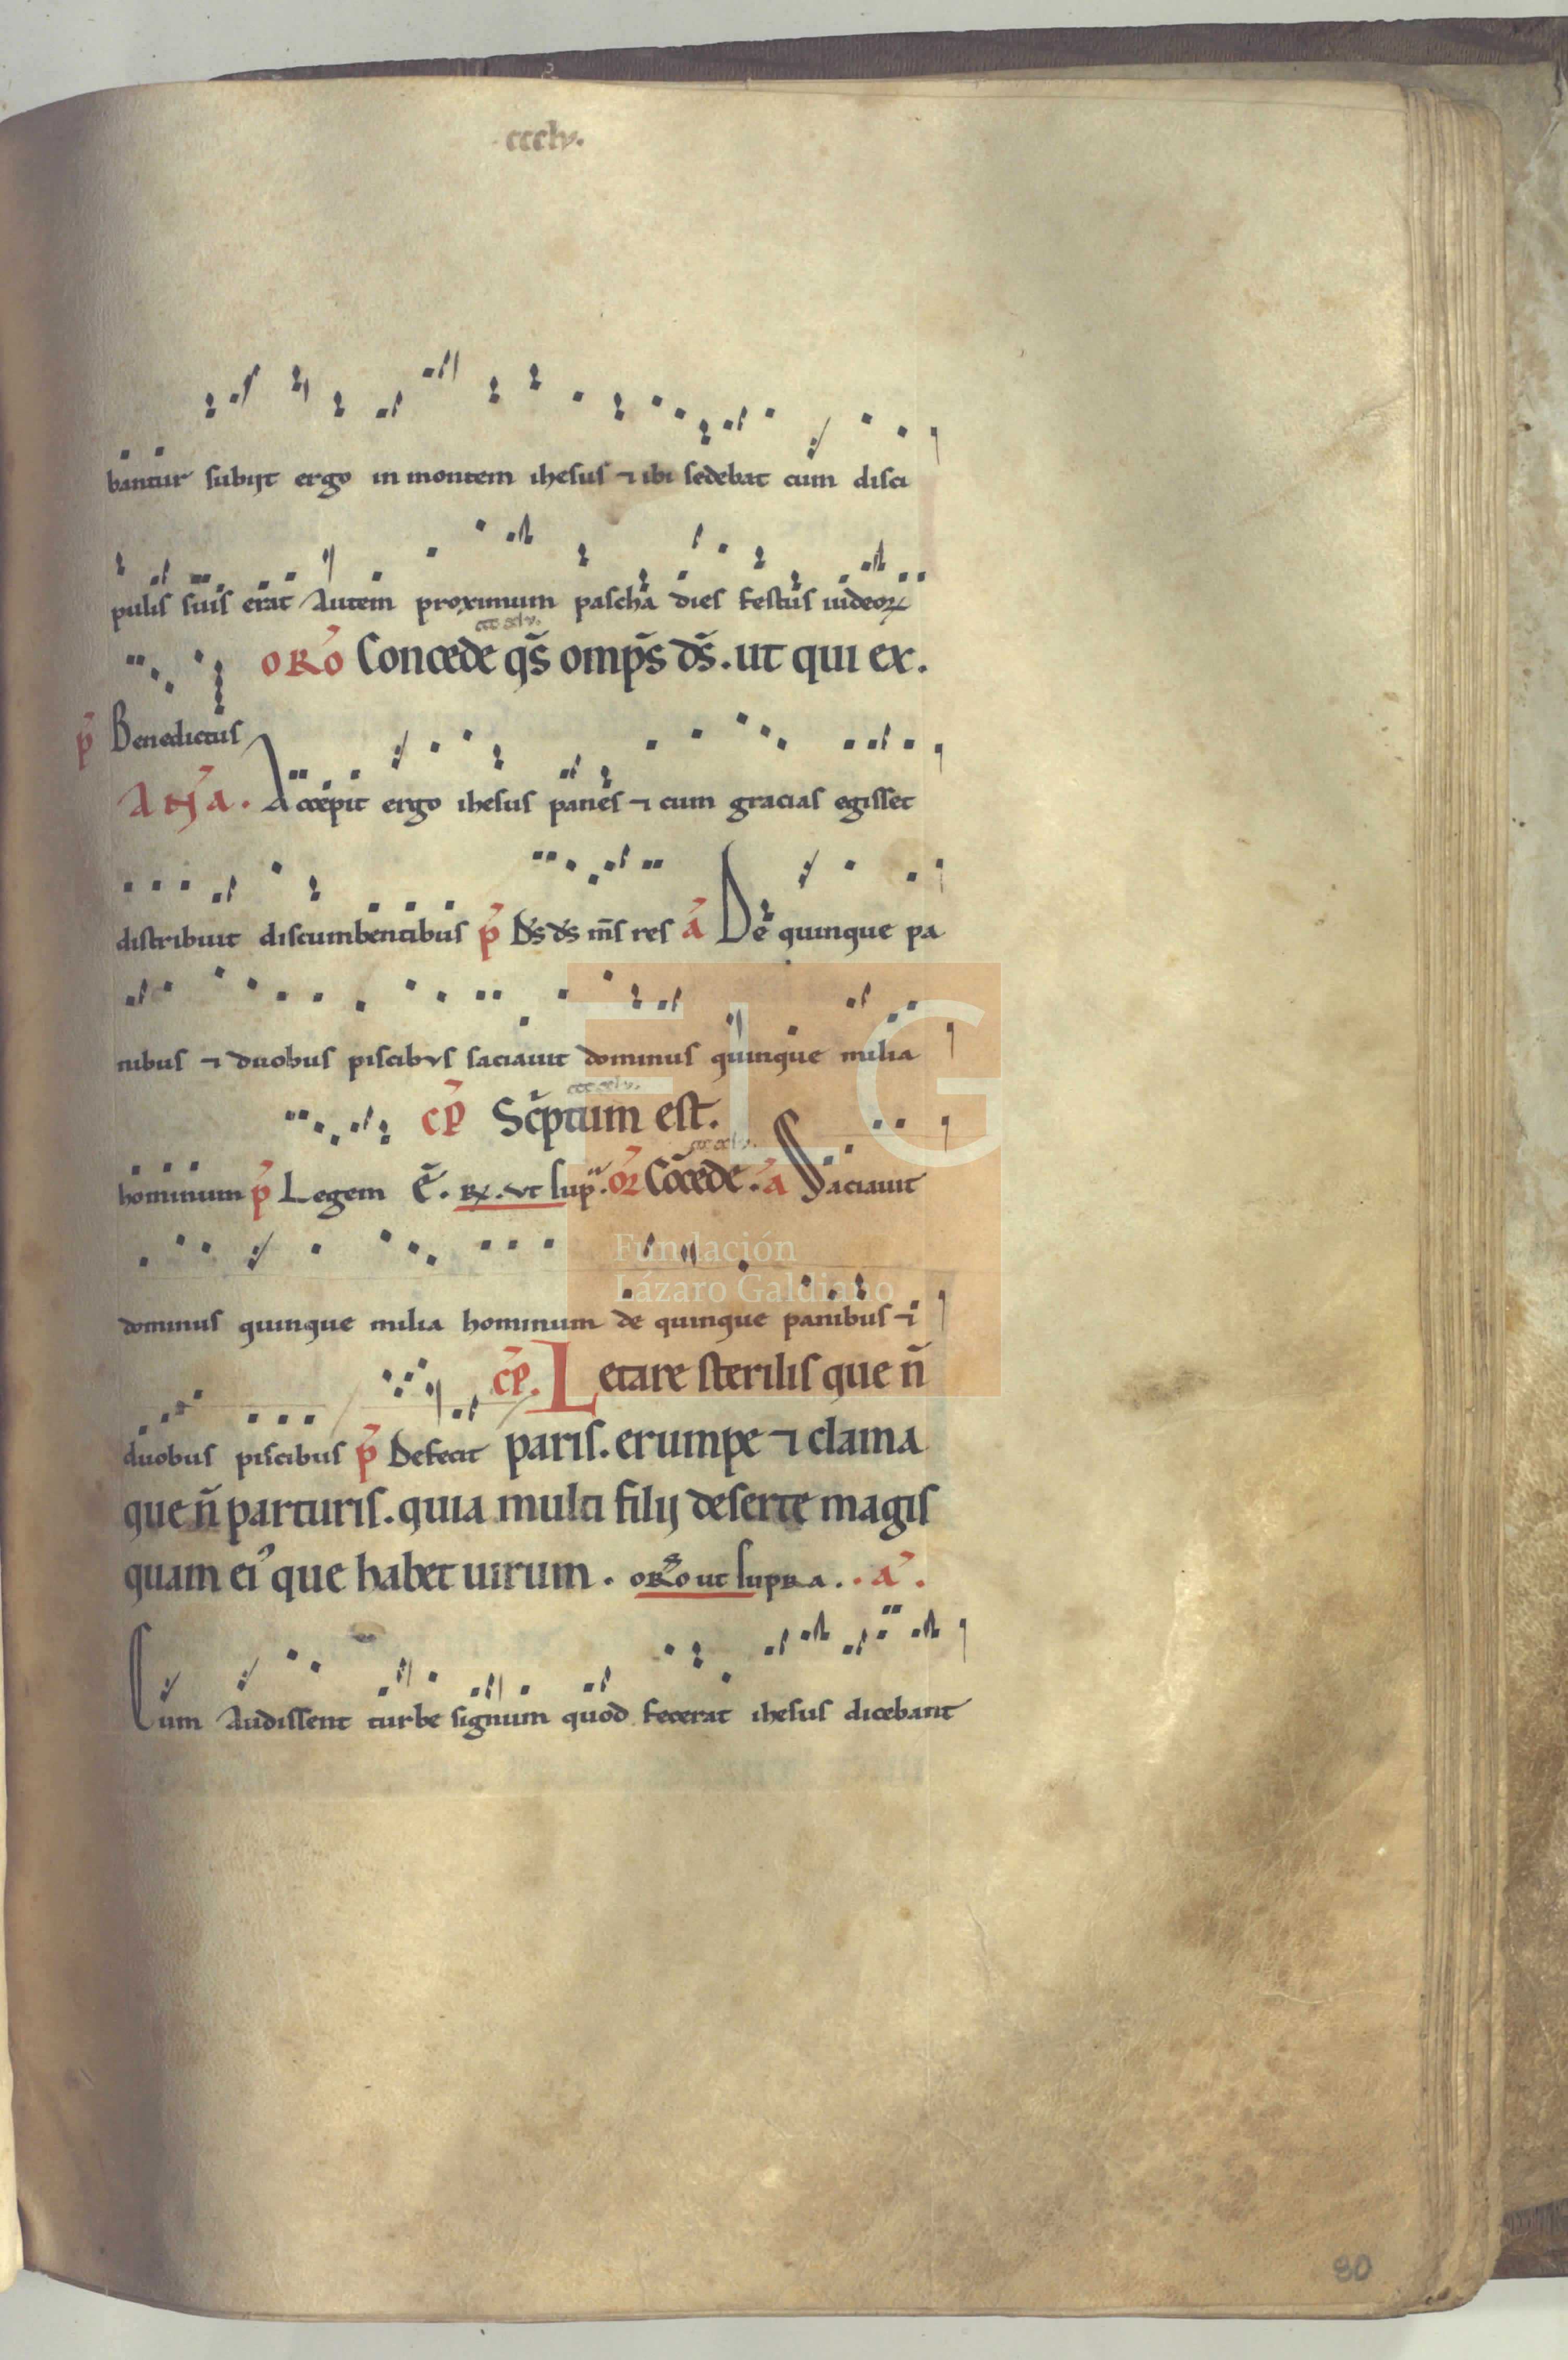 ccclv.
bantur subijt ergo in montem ihesus ⁊ ibi sedebat cum disci
pulis suis erat Autem proximum pascha dies festus iudeoꝝ
oRo Concede q̄s omp̄s d̄s. ut qui ex.
p̄ Benedictus
AN̄a. Accepit ergo ihesus panes ⁊ cum gracias egisset
distribuit discumbentibus p̄ D̄s d̄s m̄s res ā De quinque pa
nibus ⁊ duobus piscibus saciauit dominus quinque milia
cp̄ Sc̄ptum est.
hominum p̄ Legem ē. ℞. ut sup̄. or̄ Cōcede. a Saciauit
Fundación
Lázaro Galdiano
FLG
dominus quinque milia hominum de quinque panibus ⁊
cp̄. Letare sterilis que n̄
duobus piscibus p̄ Defecit paris. erumpe ⁊ clama
que n̄ parturis. quia multi filij deserte magis
quam ei᾽ que habet uirum. oR̄o ut supRa. a᾽.
Cum Audissent turbe signum quod fecerat ihesus dicebant
90